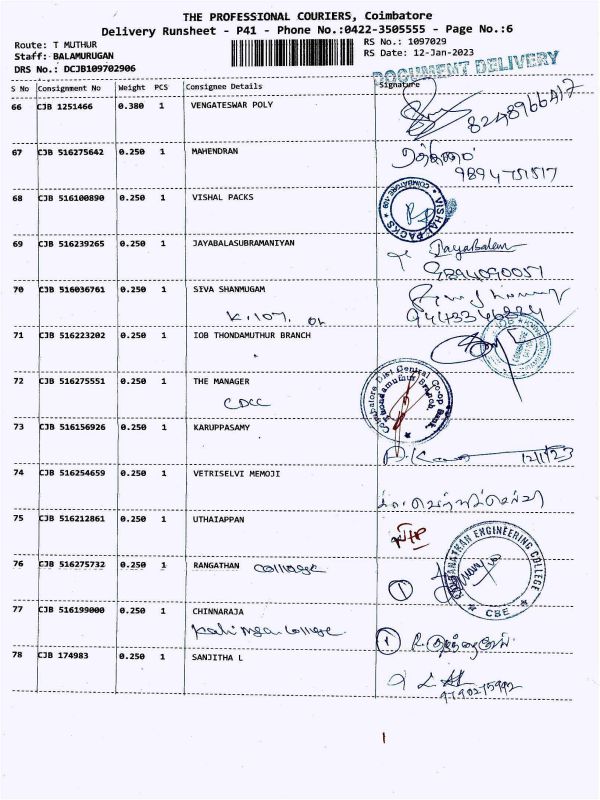 THE PROFESSIONAL COURIERS, Coimbatore
Delivery Runsheet - P41 - Phone No.:0422-3505555 - Page No.:6
Route: T MUTHUR
RS No.: 1097029
Staff: BALAMURUGAN
RS Date: 12-Jan-2023
DRS No.: DCJB109702906
DOCUMENT DELIVERY
S No Consignment No Weight PCS Consignee Details Signature
66 CJB 1251466 0.380 1 VENGATESWAR POLY
8248966417
67 CJB 516275642 0.250 1 MAHENDRAN
9894751517
68 CJB 516100890 0.250 1 VISHAL PACKS
VISHAL PACKS
69 CJB 516239265 0.250 1 JAYABALASUBRAMANIYAN
Jayabalam
9894090051
70 CJB 516036761 0.250 1 SIVA SHANMUGAM
K.107.
71 CJB 516223202 0.250 1 IOB THONDAMUTHUR BRANCH
72 CJB 516275551 0.250 1 THE MANAGER
CDCC
Coimbatore Dist Central Co-op Bank
Thondamuthur Branch
73 CJB 516156926 0.250 1 KARUPPASAMY
12/1/23
74 CJB 516254659 0.250 1 VETRISELVI MEMOJI
75 CJB 516212861 0.250 1 UTHAIAPPAN
76 CJB 516275732 0.250 1 RANGATHAN College
1
RANGANATHAN ENGINEERING COLLEGE
CBE
77 CJB 516199000 0.250 1 CHINNARAJA
College
1
78 CJB 174983 0.250 1 SANJITHA L
9790275992